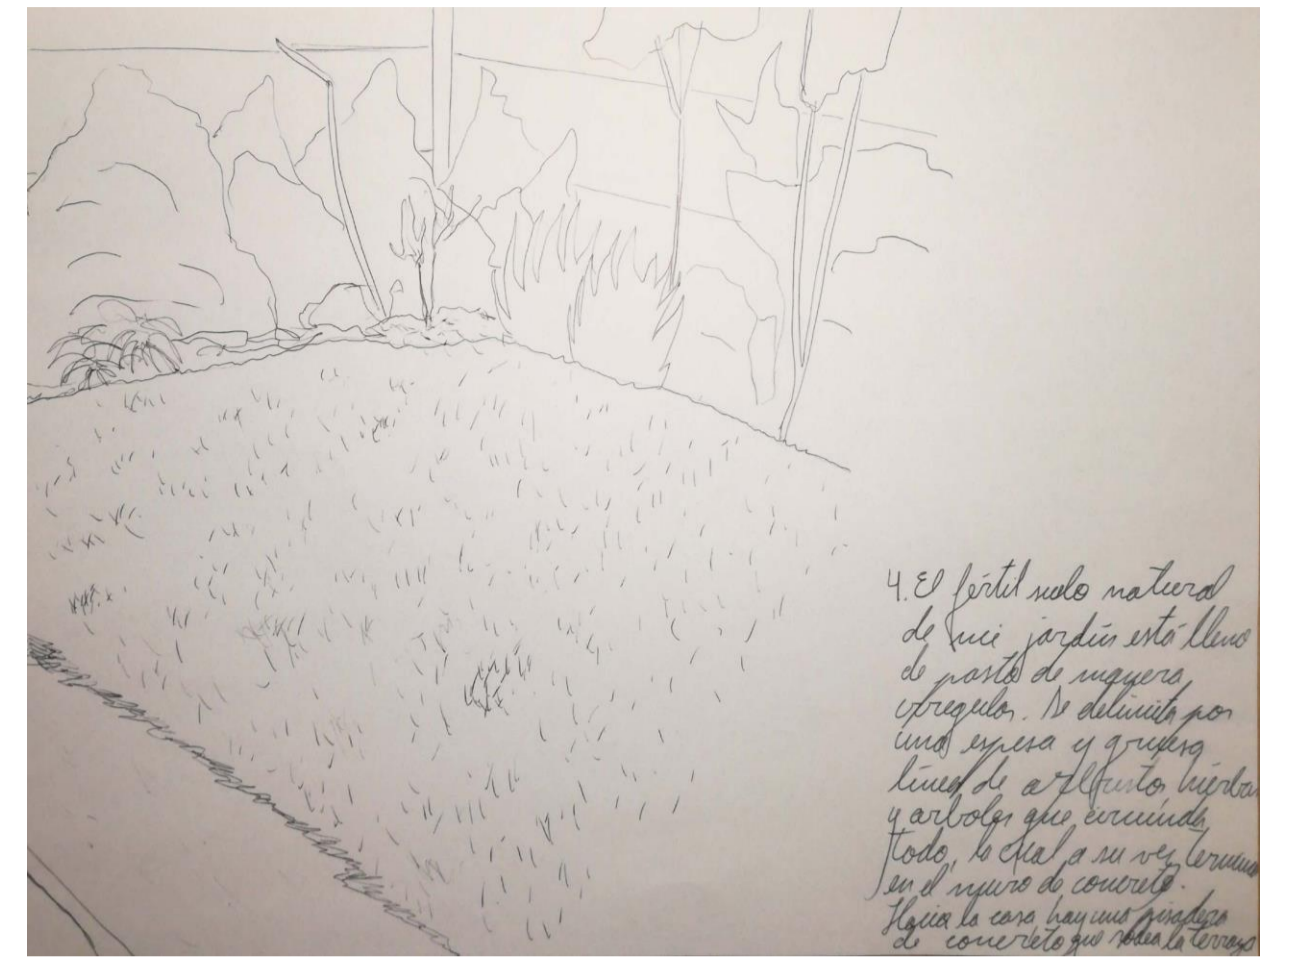 4. El fértil suelo natural
de mi jardín está lleno
de pasto de manera
irregular. Se delimita por
una espesa y gruesa
línea de arbustos, hierbas
y arboles que circunda
todo, lo cual a su vez termina
en el muro de concreto.
Hacia la casa hay una pisadera
de concreto que rodea la terraza